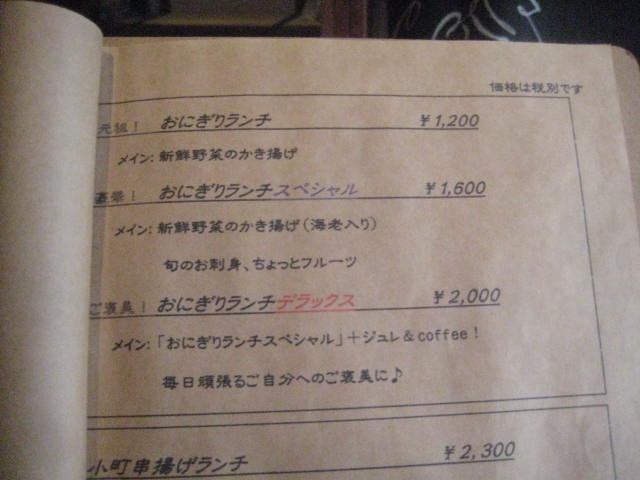 価格は税別です
元祖！ おにぎりランチ ￥1,200
メイン：新鮮野菜のかき揚げ
豪華！ おにぎりランチスペシャル ￥1,600
メイン：新鮮野菜のかき揚げ（海老入り）
旬のお刺身、ちょっとフルーツ
ご褒美！ おにぎりランチデラックス ￥2,000
メイン：「おにぎりランチスペシャル」＋ジュレ＆coffee！
毎日頑張るご自分へのご褒美に♪
小町串揚げランチ ￥2,300